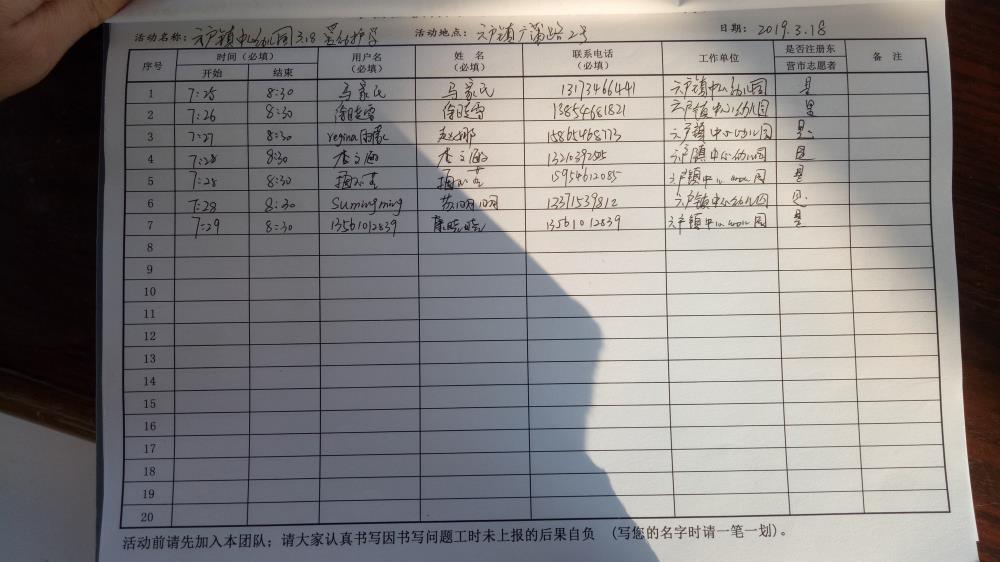 活动名称：六户镇中心幼儿园3.18爱心护学 活动地点：六户镇广蒲路2号 日期：2019.3.18
序号 时间（必填） 用户名（必填） 姓名（必填） 联系电话（必填） 工作单位 是否注册东营市志愿者 备注
开始 结束
1 7:25 8:30 13173466441 六户镇中心幼儿园 是
2 7:26 8:30 徐晓雪 徐晓雪 13854681821 六户镇中心幼儿园 是
3 7:27 8:30 赵娜 15865468773 六户镇中心幼儿园 是
4 7:28 8:30 李文丽 李文丽 六户镇中心幼儿园 是
5 7:28 8:30 15954612085 六户镇中心幼儿园 是
6 7:28 8:30 Sumingming 苏明明 12371539812 六户镇中心幼儿园 是
7 7:29 8:30 13561012839 晓晓 13561012839 六户镇中心幼儿园 是
8
9
10
11
12
13
14
15
16
17
18
19
20
活动前请先加入本团队；请大家认真书写因书写问题工时未上报的后果自负 （写您的名字时请一笔一划）。